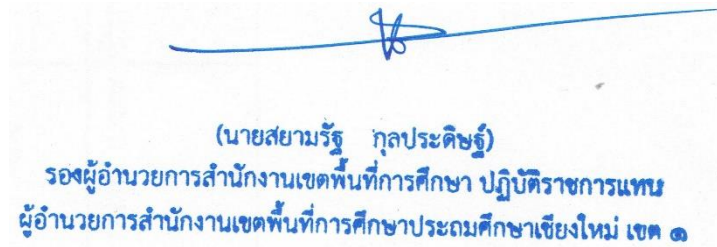 (นายสยามรัฐ กุลประดิษฐ์)
รองผู้อำนวยการสำนักงานเขตพื้นที่การศึกษา ปฏิบัติราชการแทน
ผู้อำนวยการสำนักงานเขตพื้นที่การศึกษาประถมศึกษาเชียงใหม่ เขต ๑